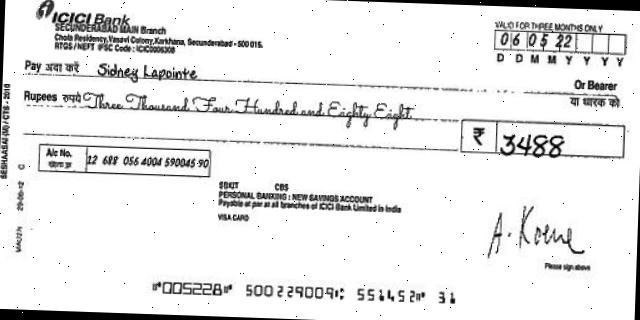 ICICI Bank
SECUNDERABAD MAIN Branch
Chota Residency, Vasavi Colony, Karkhana, Secunderabad - 500 015.
RTGS / NEFT IFSC Code : ICIC0006308
VALID FOR THREE MONTHS ONLY
0 6 0 5 22
D D M M Y Y Y Y
Pay अदा करें Sidney Lapointe
Or Bearer
या धारक को
Rupees रुपये Three Thousand Four Hundred and Eighty Eight
₹ 3488
A/c No. 12 688 056 4004 590045 90
SBKIT CBS
PERSONAL BANKING : NEW SAVINGS ACCOUNT
Payable at par at all branches of ICICI Bank Limited in India
VISA CARD
A. Koene
Please sign above
⑈005228⑈ 500229009⑆ 551452⑈ 31